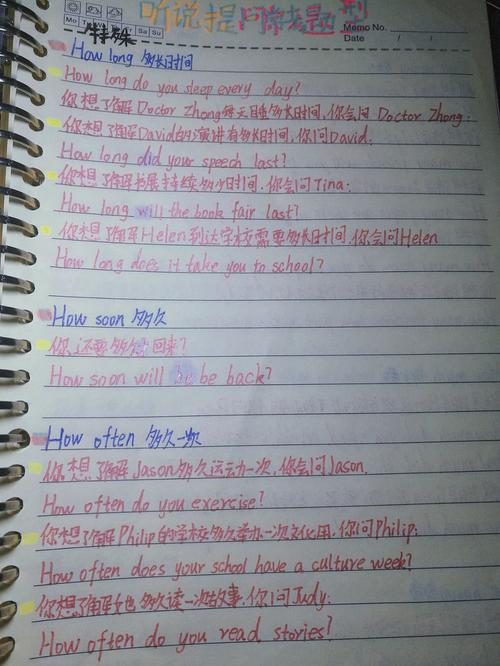 听说提问常考题型
Mo Tu Sa Su
Memo No.
Date / /
特殊
How long 多长时间
How long do you sleep every day?
你想了解Doctor Zhong每天睡多长时间,你会问 Doctor Zhong:
你想了解David的演讲有多长时间,你问David:
How long did your speech last?
你想了解书展持续多少时间,你会问Tina:
How long will the book fair last?
你想了解Helen到达学校需要多长时间,你会问Helen
How long does it take you to school?
How soon 多久
你还要多久回来?
How soon will be back?
How often 多久一次
你想了解Jason多久运动一次,你会问Jason.
How often do you exercise?
你想了解Philip的学校多久举办一次文化周,你问Philip:
How often does your school have a culture week?
你想了解她多久读一次故事,你问Judy:
How often do you read stories?